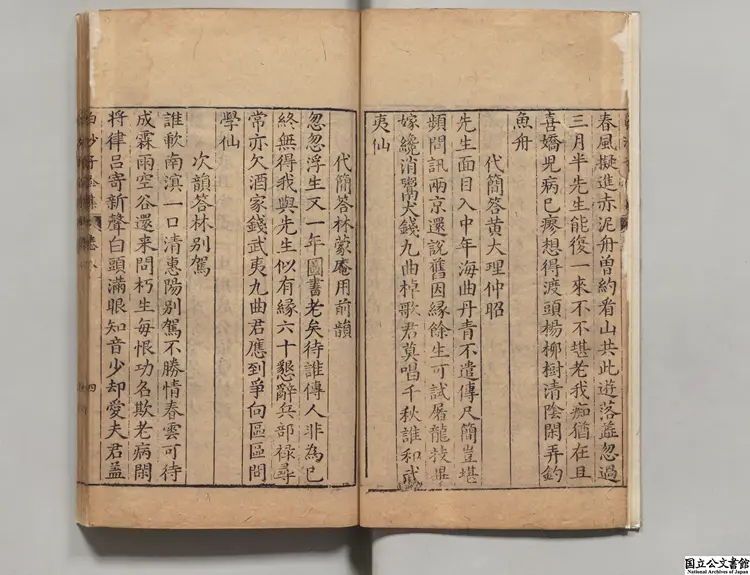 春風擬進赤泥舟曾約看山共此遊落蕋忽過
三月半先生能復一來不不堪老我痴猶在且
喜嬌兒病已瘳想得渡頭楊柳樹清陰閑弄釣
魚舟
代簡答黃大理仲昭
先生面目入中年海曲丹青不遣傳尺簡豈堪
頻問訊兩京還說舊因緣餘生可試屠龍技
嫁纔消鬻犬錢九曲棹歌君莫唱千秋誰和武
夷仙
代簡答林蒙庵用前韻
忽忽浮生又一年圖書老矣待誰傳人非為已
終無得我與先生似有緣六十懇辭兵部祿尋
常亦欠酒家錢武夷九曲君應到爭向區區問
學仙
次韻答林別駕
誰軟南溟一口清惠陽別駕不勝情春雲可待
成霖雨空谷還來問朽生每恨功名欺老病閑
將律呂寄新聲白頭滿眼知音少却愛夫君盖
白沙子全集 卷八 四
国立公文書館
National Archives of Japan